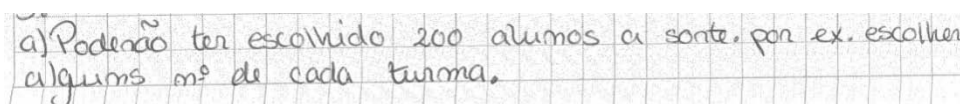 a) Poderão ter escolhido 200 alumos a sorte. por ex. escolher
algums nº de cada turma.